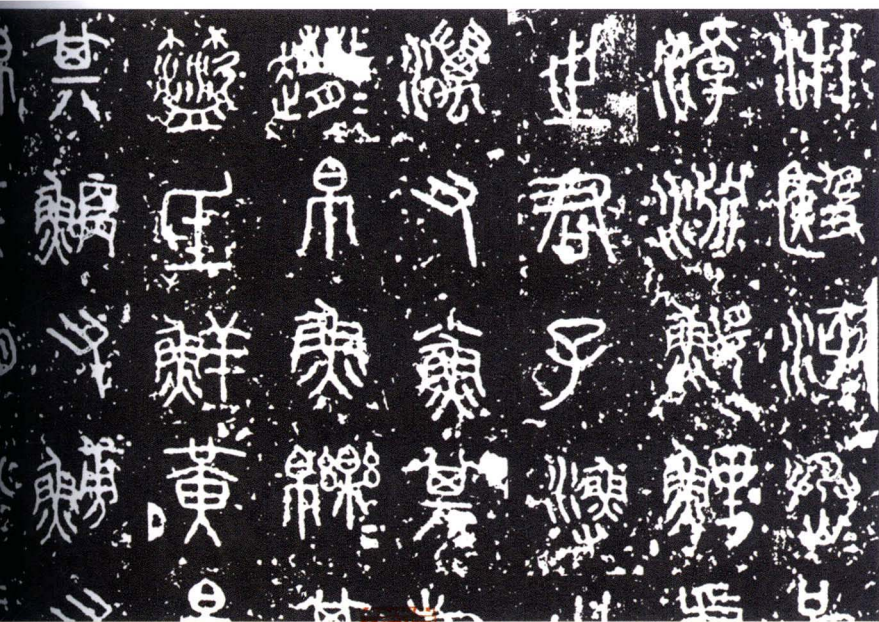 汧殹沔丞皮
淖淵鰋鯉處
之君子漁之
澫又小魚其斿
趩帛魚鱳其
盜氐鮮黃帛
其鯿又鰟又